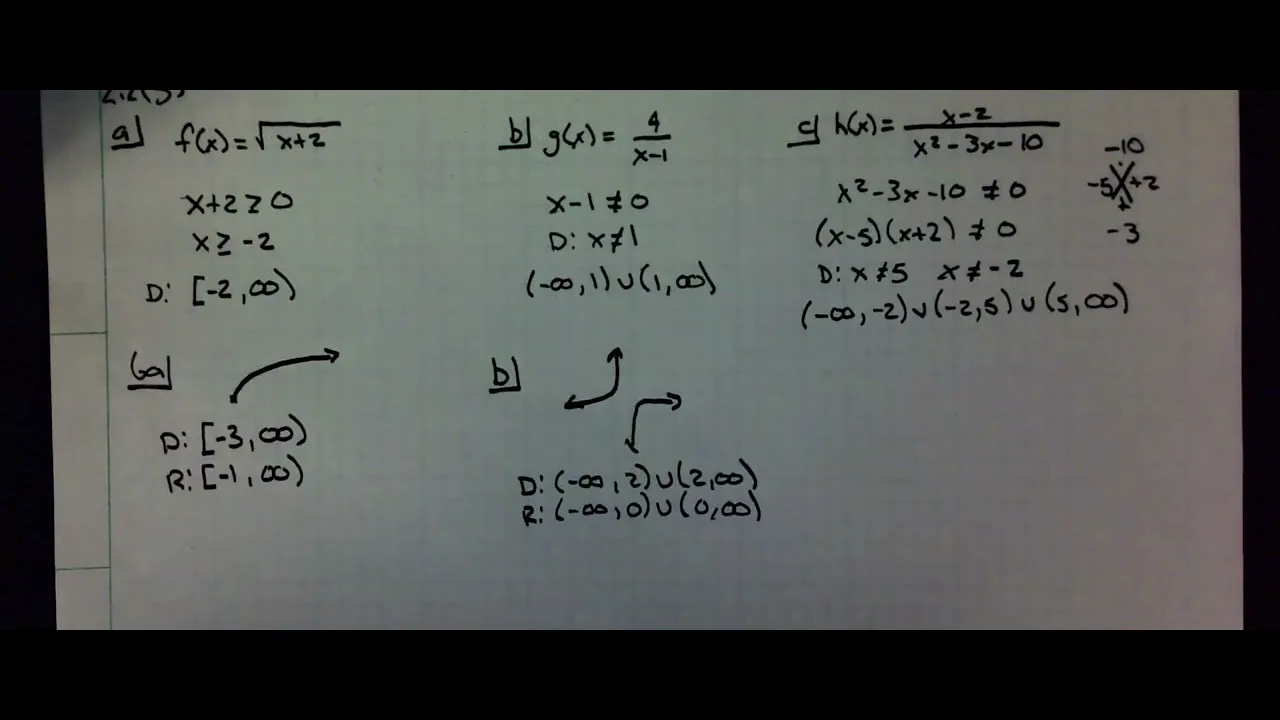 2.2(5)
a) f(x) = √x+2
x+2 ≥ 0
x ≥ -2
D: [-2, ∞)
b) g(x) = 4/(x-1)
x-1 ≠ 0
D: x ≠ 1
(-∞, 1) ∪ (1, ∞)
c) h(x) = (x-2)/(x² - 3x - 10)
x² - 3x - 10 ≠ 0
(x-5)(x+2) ≠ 0
D: x ≠ 5 x ≠ -2
(-∞, -2) ∪ (-2, 5) ∪ (5, ∞)
-10
-5 +2
+
-3
6a)
D: [-3, ∞)
R: [-1, ∞)
b)
D: (-∞, 2) ∪ (2, ∞)
R: (-∞, 0) ∪ (0, ∞)